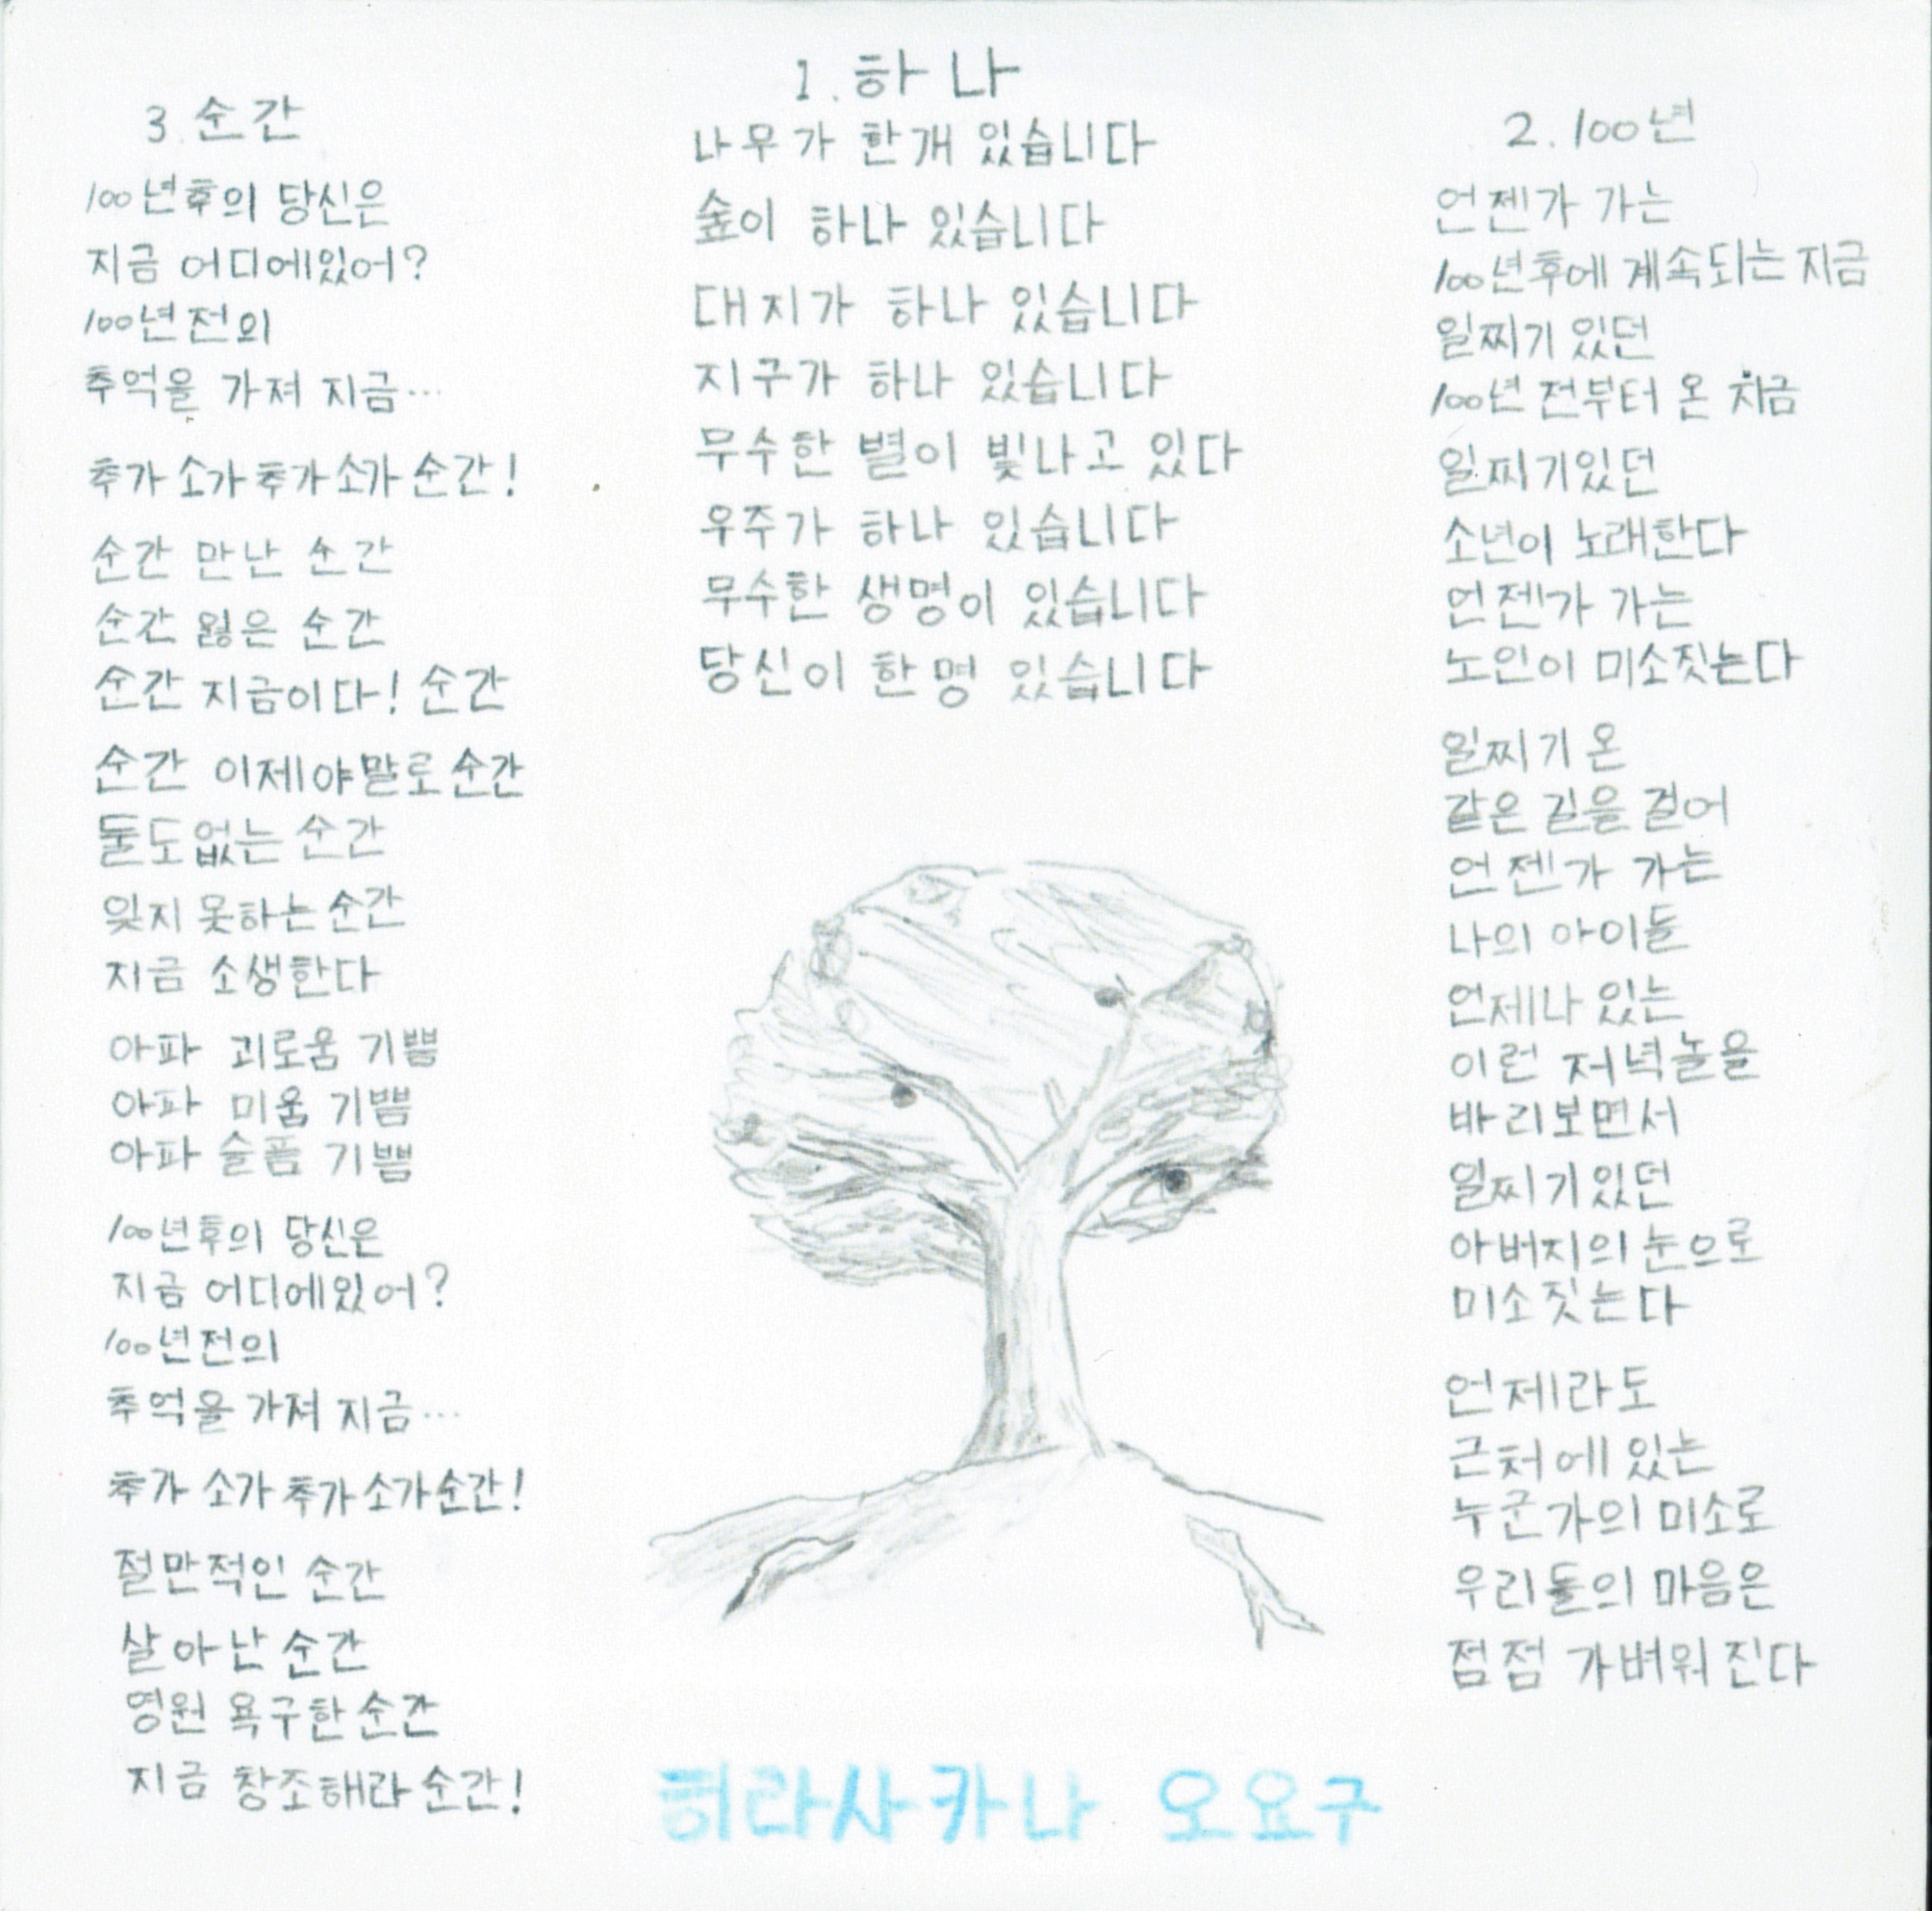 1. 하나
나무가 한개 있습니다
숲이 하나 있습니다
대지가 하나 있습니다
지구가 하나 있습니다
무수한 별이 빛나고 있다
우주가 하나 있습니다
무수한 생명이 있습니다
당신이 한명 있습니다
2. 100년
언젠가 가는
100년후에 계속되는 지금
일찌기 있던
100년 전부터 온 지금
일찌기있던
소년이 노래한다
언젠가 가는
노인이 미소짓는다
일찌기 온
같은 길을 걸어
언젠가 가는
나의 아이들
언제나 있는
이런 저녁놀을
바리보면서
일찌기있던
아버지의 눈으로
미소짓는다
언제라도
근처에 있는
누군가의 미소로
우리들의 마음은
점점 가벼워 진다
3. 순간
100년후의 당신은
지금 어디에있어?
100년전의
추억을 가져 지금…
추가 소가 추가 소가 순간!
순간 만난 순간
순간 잃은 순간
순간 지금이다! 순간
순간 이제야말로 순간
둘도없는 순간
잊지 못하는 순간
지금 소생한다
아파 괴로움 기쁨
아파 미움 기쁨
아파 슬픔 기쁨
100년후의 당신은
지금 어디에있어?
100년전의
추억을 가져 지금…
추가 소가 추가 소가 순간!
절만적인 순간
살아난 순간
영원 욕구한 순간
지금 창조해라 순간!
히라사카나 오요구